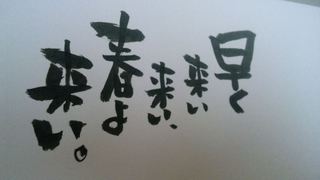 早く
来い
来い、
春よ
来い。